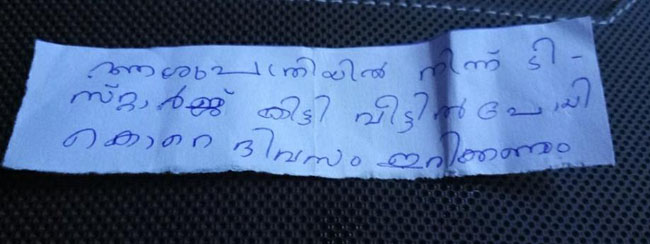 ആശുപത്രിയിൽ നിന്ന് ഡി-
സ്റ്റാർജ്ജ് കിട്ടി വീട്ടിൽ പോയി
കൊറെ ദിവസം ഇരിക്കണം